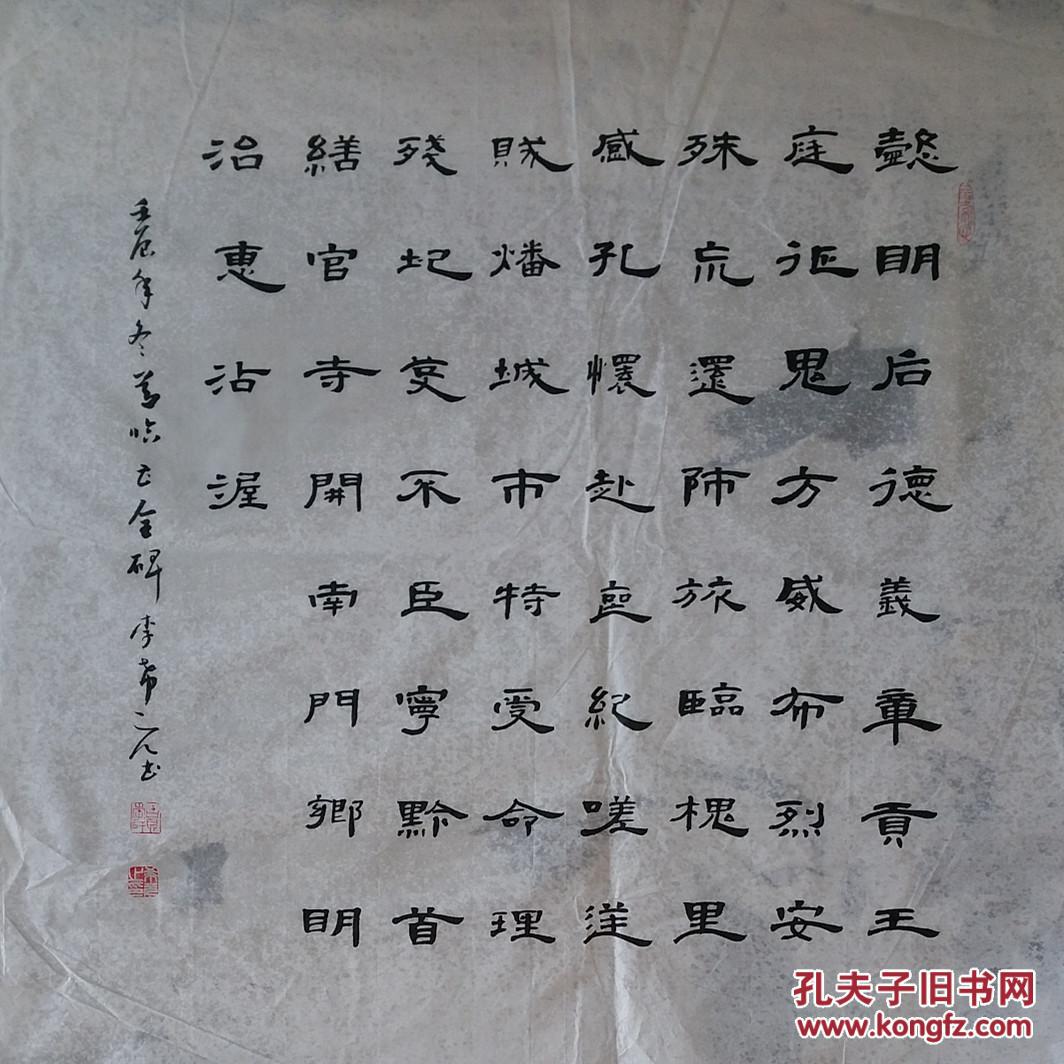 懿明后德義章貢王
庭征鬼方威布烈安
殊荒還師旅臨槐里
感孔懷赴喪紀嗟逆
賊燔城市特受命理
殘圮芟不臣寧黔首
繕官寺開南門鄉明
治惠沾渥
壬辰年冬臨曹全碑李希元书
孔夫子旧书网
www.kongfz.com